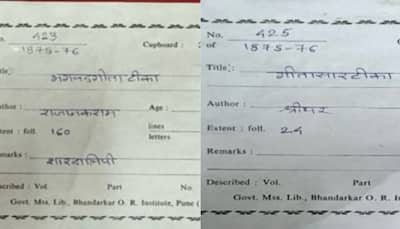 No. 423
1875-76
Cupboard :
Title: भगवद्गीता टीका
Author :
Age :
Extent : foll. 160
lines
letters
Remarks : शारदालिपी
Described : Vol. Part
Govt. Mss. Lib., Bhandarkar O. R. Institute, Pune
No. 425
of 1875-76
Title: गीतासारटीका
Author :
Extent : foll. 24
Remarks :
Described : Vol. Part
Govt. Mss. Lib., Bhandarkar O. R. Institute, Pune